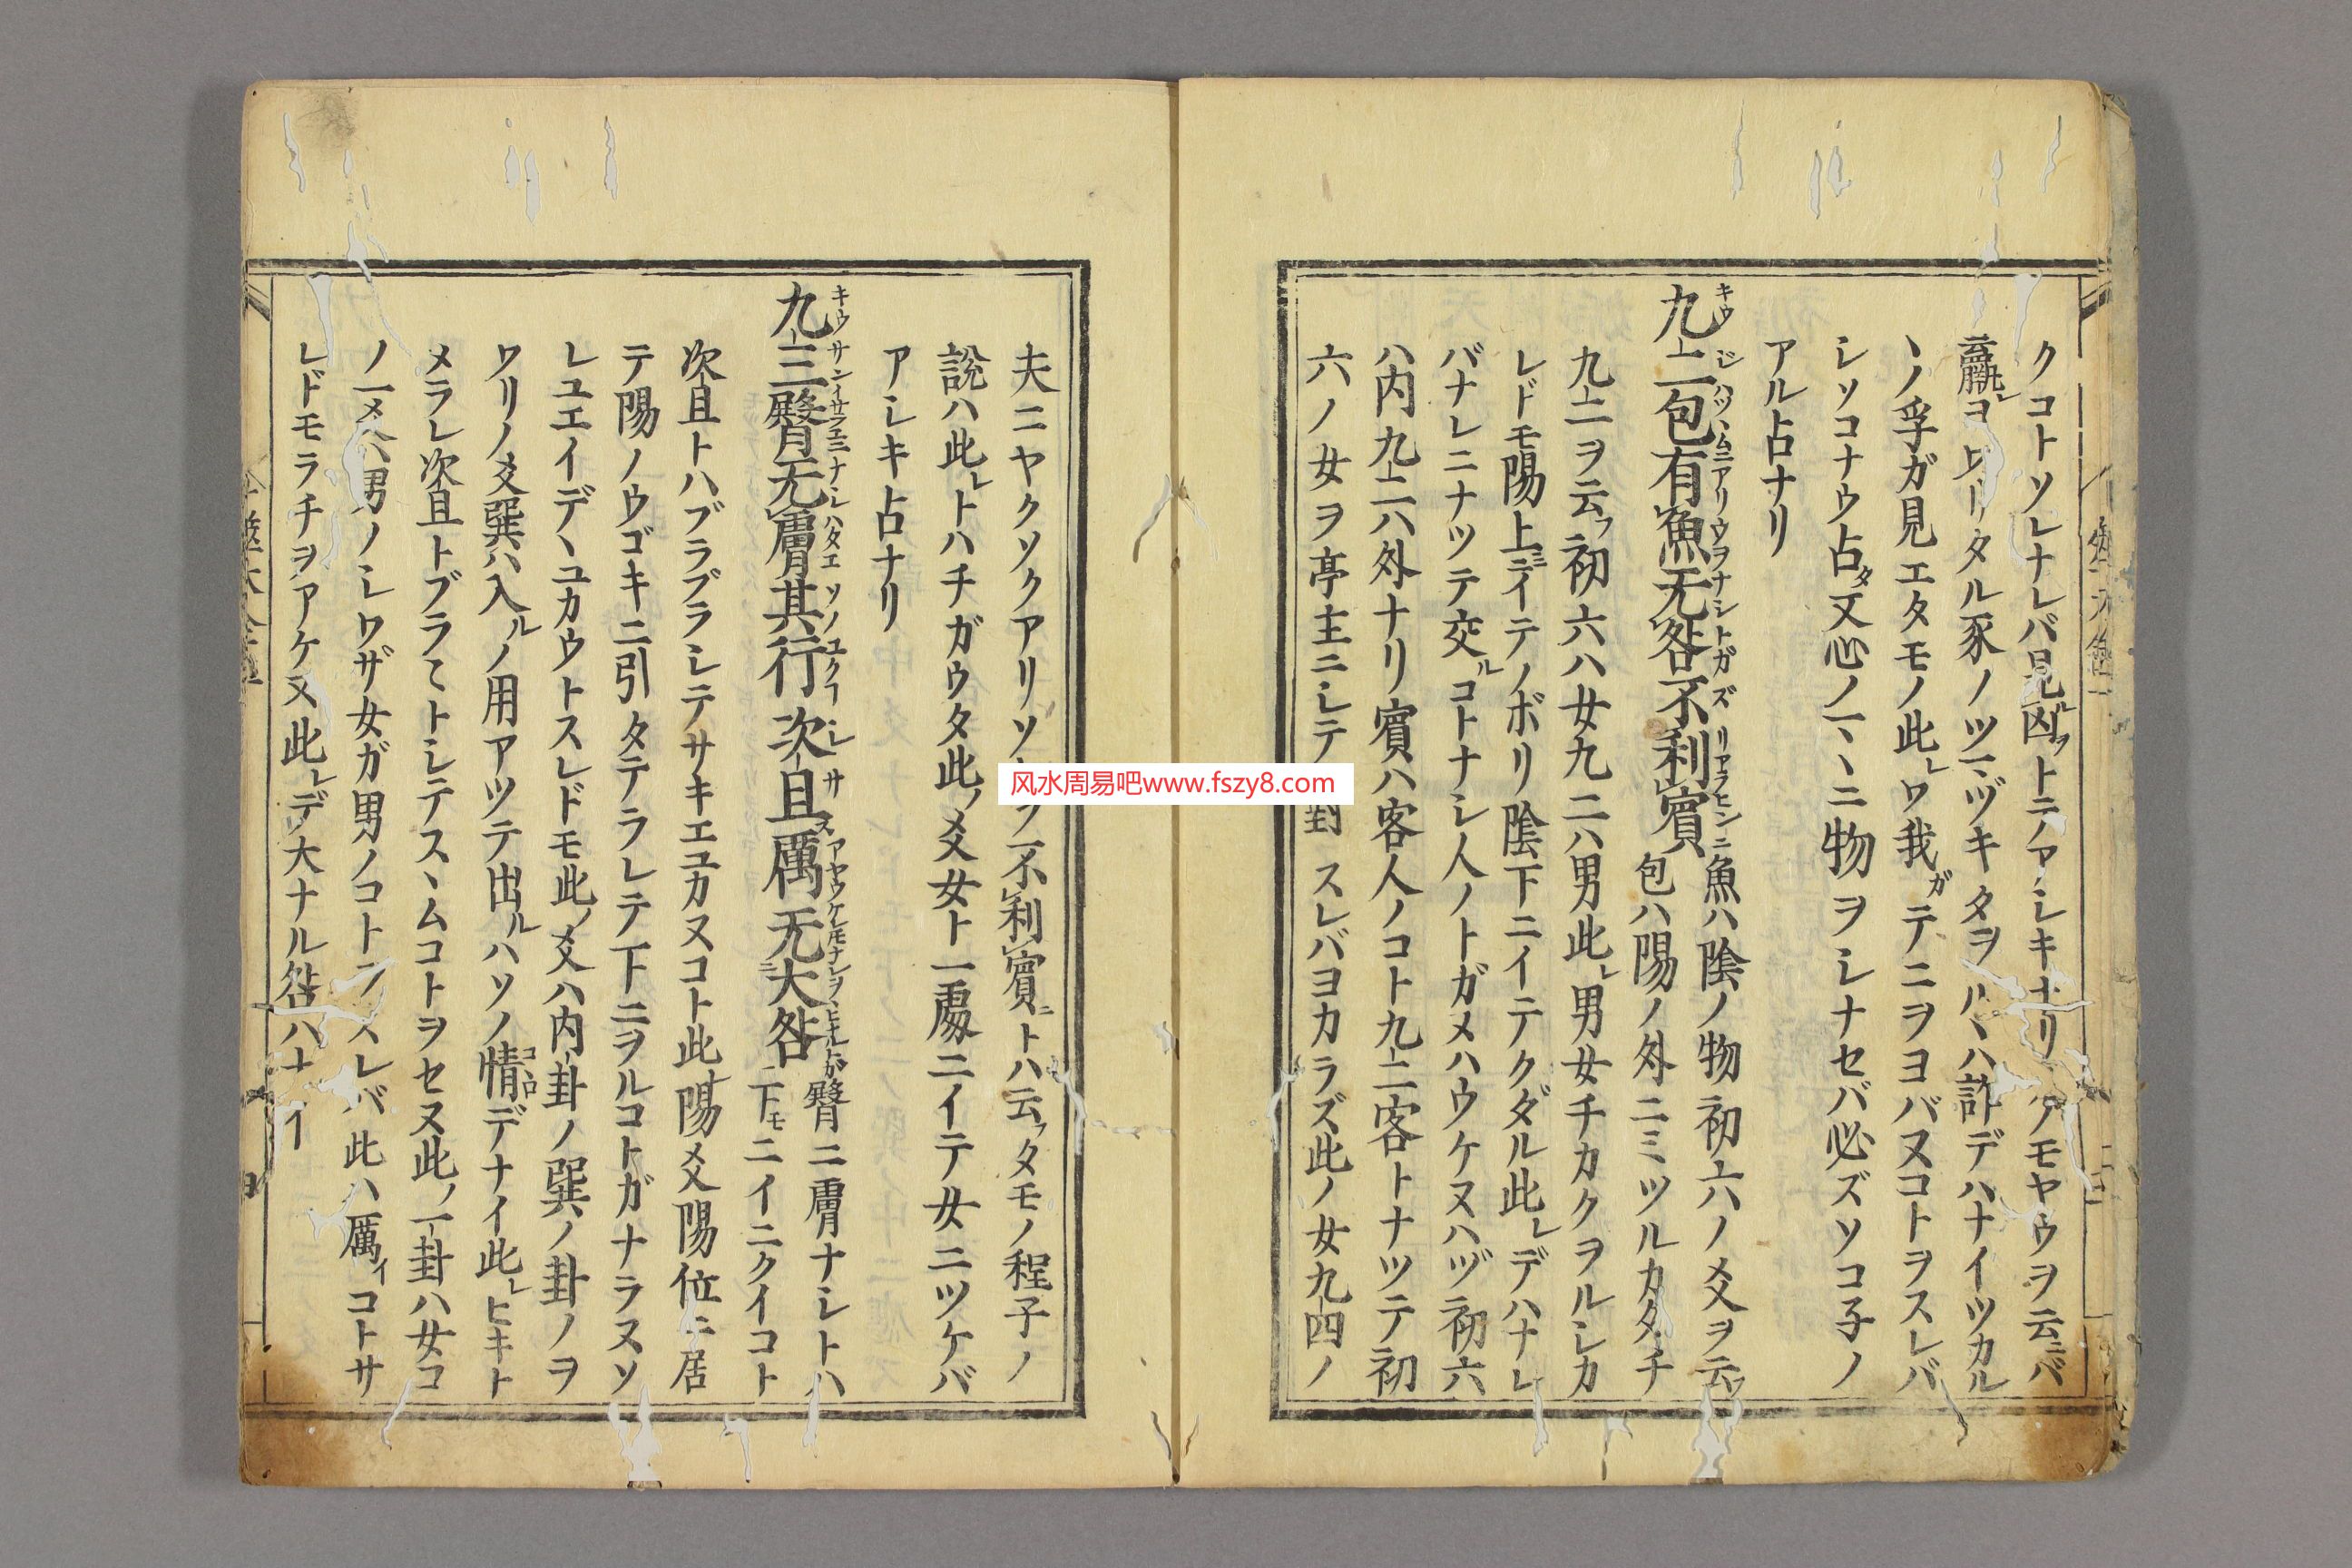 クコトソレナレバ見ル凶フトニノアシキナリ アモヤウヲ云ニバ
云羸レコレタル豕ノツマヅキタヲルヽハ詐デハナイツカル
ヽノ孚ガ見エタモノ此レワ我ガテニヲヨバヌコトヲスレバ
シソコナウ占タ又心ノ一ヽニ物ヲシナセバ必ズソコ子ノ
アル占ナリ
九二包有魚无咎不利賓
魚ハ陰ノ物初六ノ爻ヲ云フ
包ハ陽ノ外ニミツルカタチ
九二ヲ云フ初六ハ女九二ハ男此レ男女チカクヲルシカ
レドモ陽上ニイテノボリ陰下ニイテクダル此レデハナレ
バナレニナツテ交ルコトナシ人ノトガメハウケヌハヅ初六
ハ内九二ハ外ナリ賓ハ客人ノコト九二客トナツテ初
六ノ女ヲ亭主ニシテ 對スレバヨカラズ此ノ女九四ノ
夫ニヤクソクアリソ フ不利賓ニトハ云フタモノ程子ノ
說ハ此レトハチガウタ此ノ爻女ト一處ニイテ女ニツケバ
アシキ占ナリ
九三臀无膚其行次且厲无大咎
臀ニ膚ナシトハ
下モニイニクイコト
次且トハブラブラシテサキエユカヌコト此陽爻陽位ニ居
テ陽ノウゴキニ引タテラレテ下ニヲルコトガナラヌソ
レユエイデヽユカウトスレドモ此ノ爻ハ内卦ノ巽ノ卦ノヲ
ワリノ爻巽ハ入ルノ用アツテ出ルハソノ情デナイ此レヒキト
メラレ次且トブラ〱トシテスヽムコトヲセヌ此ノ一卦ハ女コ
ノ一メハ男ノシワザ女ガ男ノコトヲスレバ此ハ厲イコトサ
レドモラチヲアケヌ此レデ大ナル咎ハナイ
风水周易吧www.fszy8.com